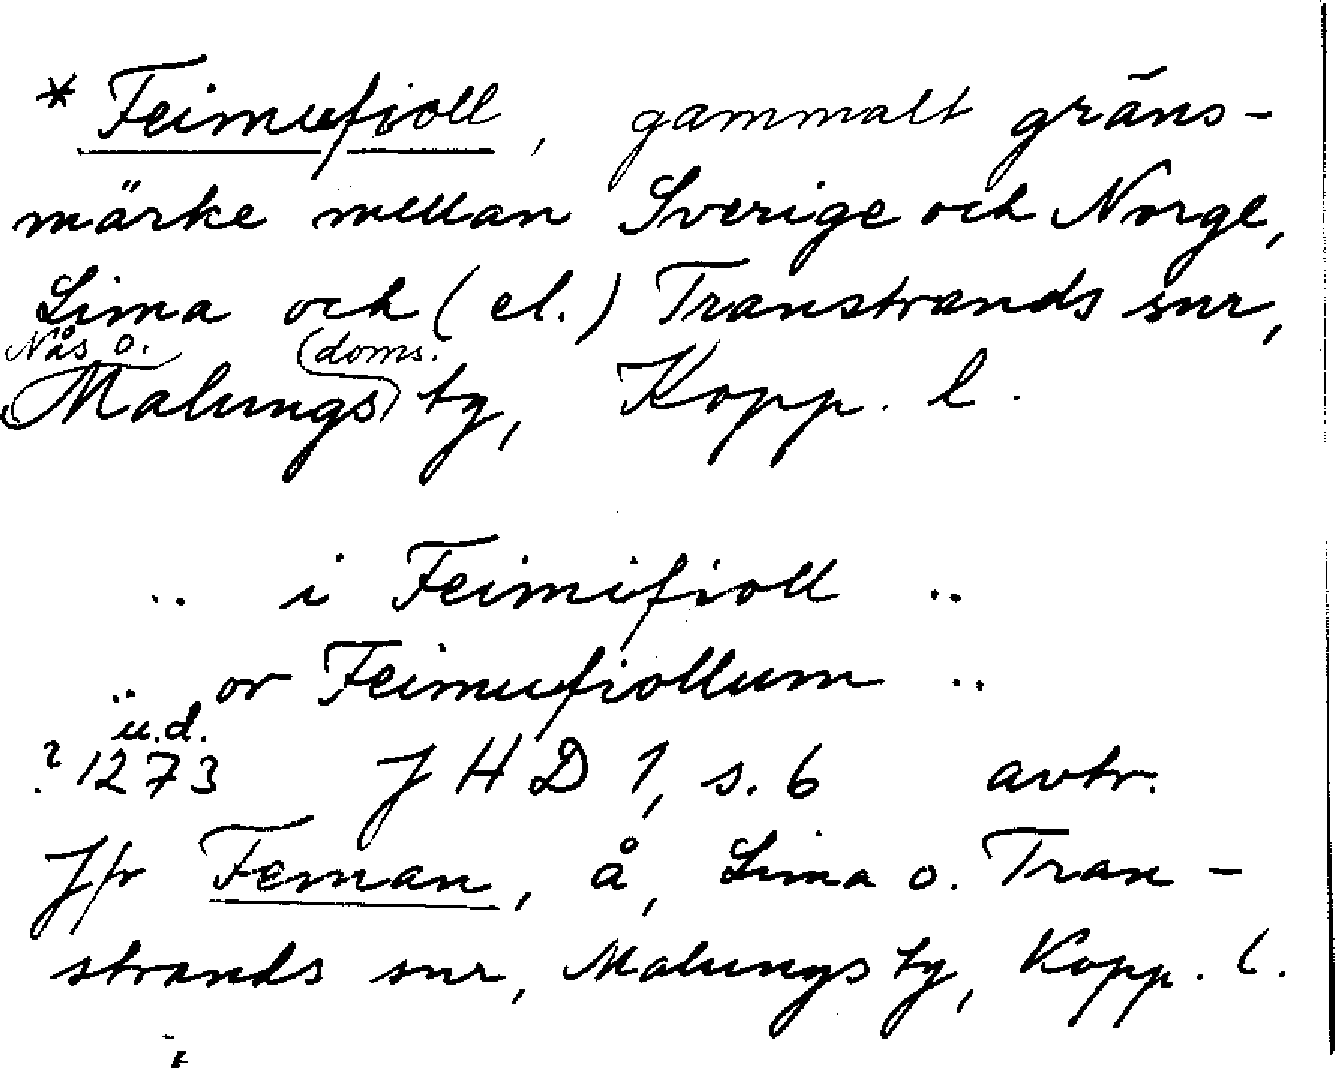 * Feimufioll, gammalt gräns-
märke mellan Sverige och Norge,
Lima och (el.) Transtrands snr,
Nås o. (doms.
(Malungs) tg, Kopp. l.
.. i Feimifioll ..
.. or Feimufiollum ..
u.d.
? 1273 JHD 1, s. 6 avtr.
Jfr Feman, å, Lima o. Tran-
strands snr, Malungs tg, Kopp. l.